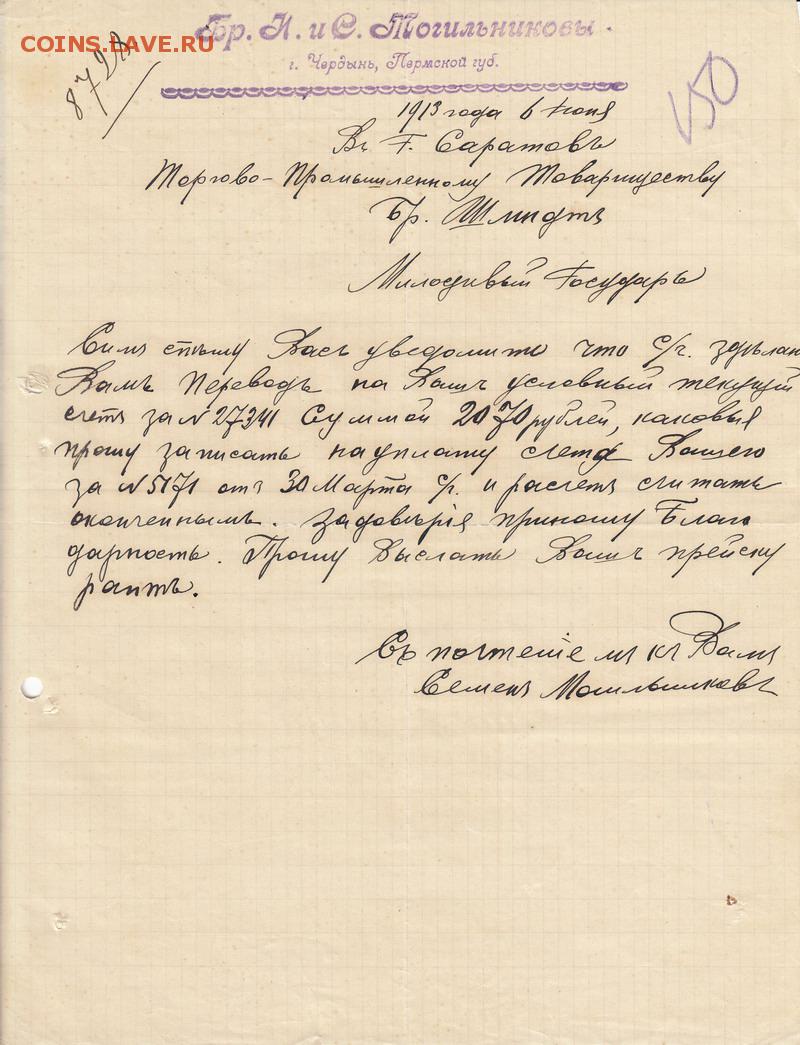 COINS.LAVE.RU
Бр. И. и С. Могильниковы.
г. Чердынь, Пермской губ.
8728
150
1913 года 6 Июня
Въ г. Саратовъ
Торгово-Промышленному Товариществу
Бр. Шмидтъ
Милостивый Государь
Симъ спѣшу Васъ уведомить что с/г. здѣлан
Вамъ переводъ на Вашъ условный текущий
счетъ за № 27341 суммой 2070 рублей, каковыя
прошу записать на уплату счета Вашего
за № 5171 отъ 30 Марта с/г. и расчетъ считать
оконченнымъ. За довѣріе приношу Благо
дарность. Прошу выслать Вашъ прейску
рантъ.
Съ почтеніемъ къ Вамъ
Семенъ Могильниковъ